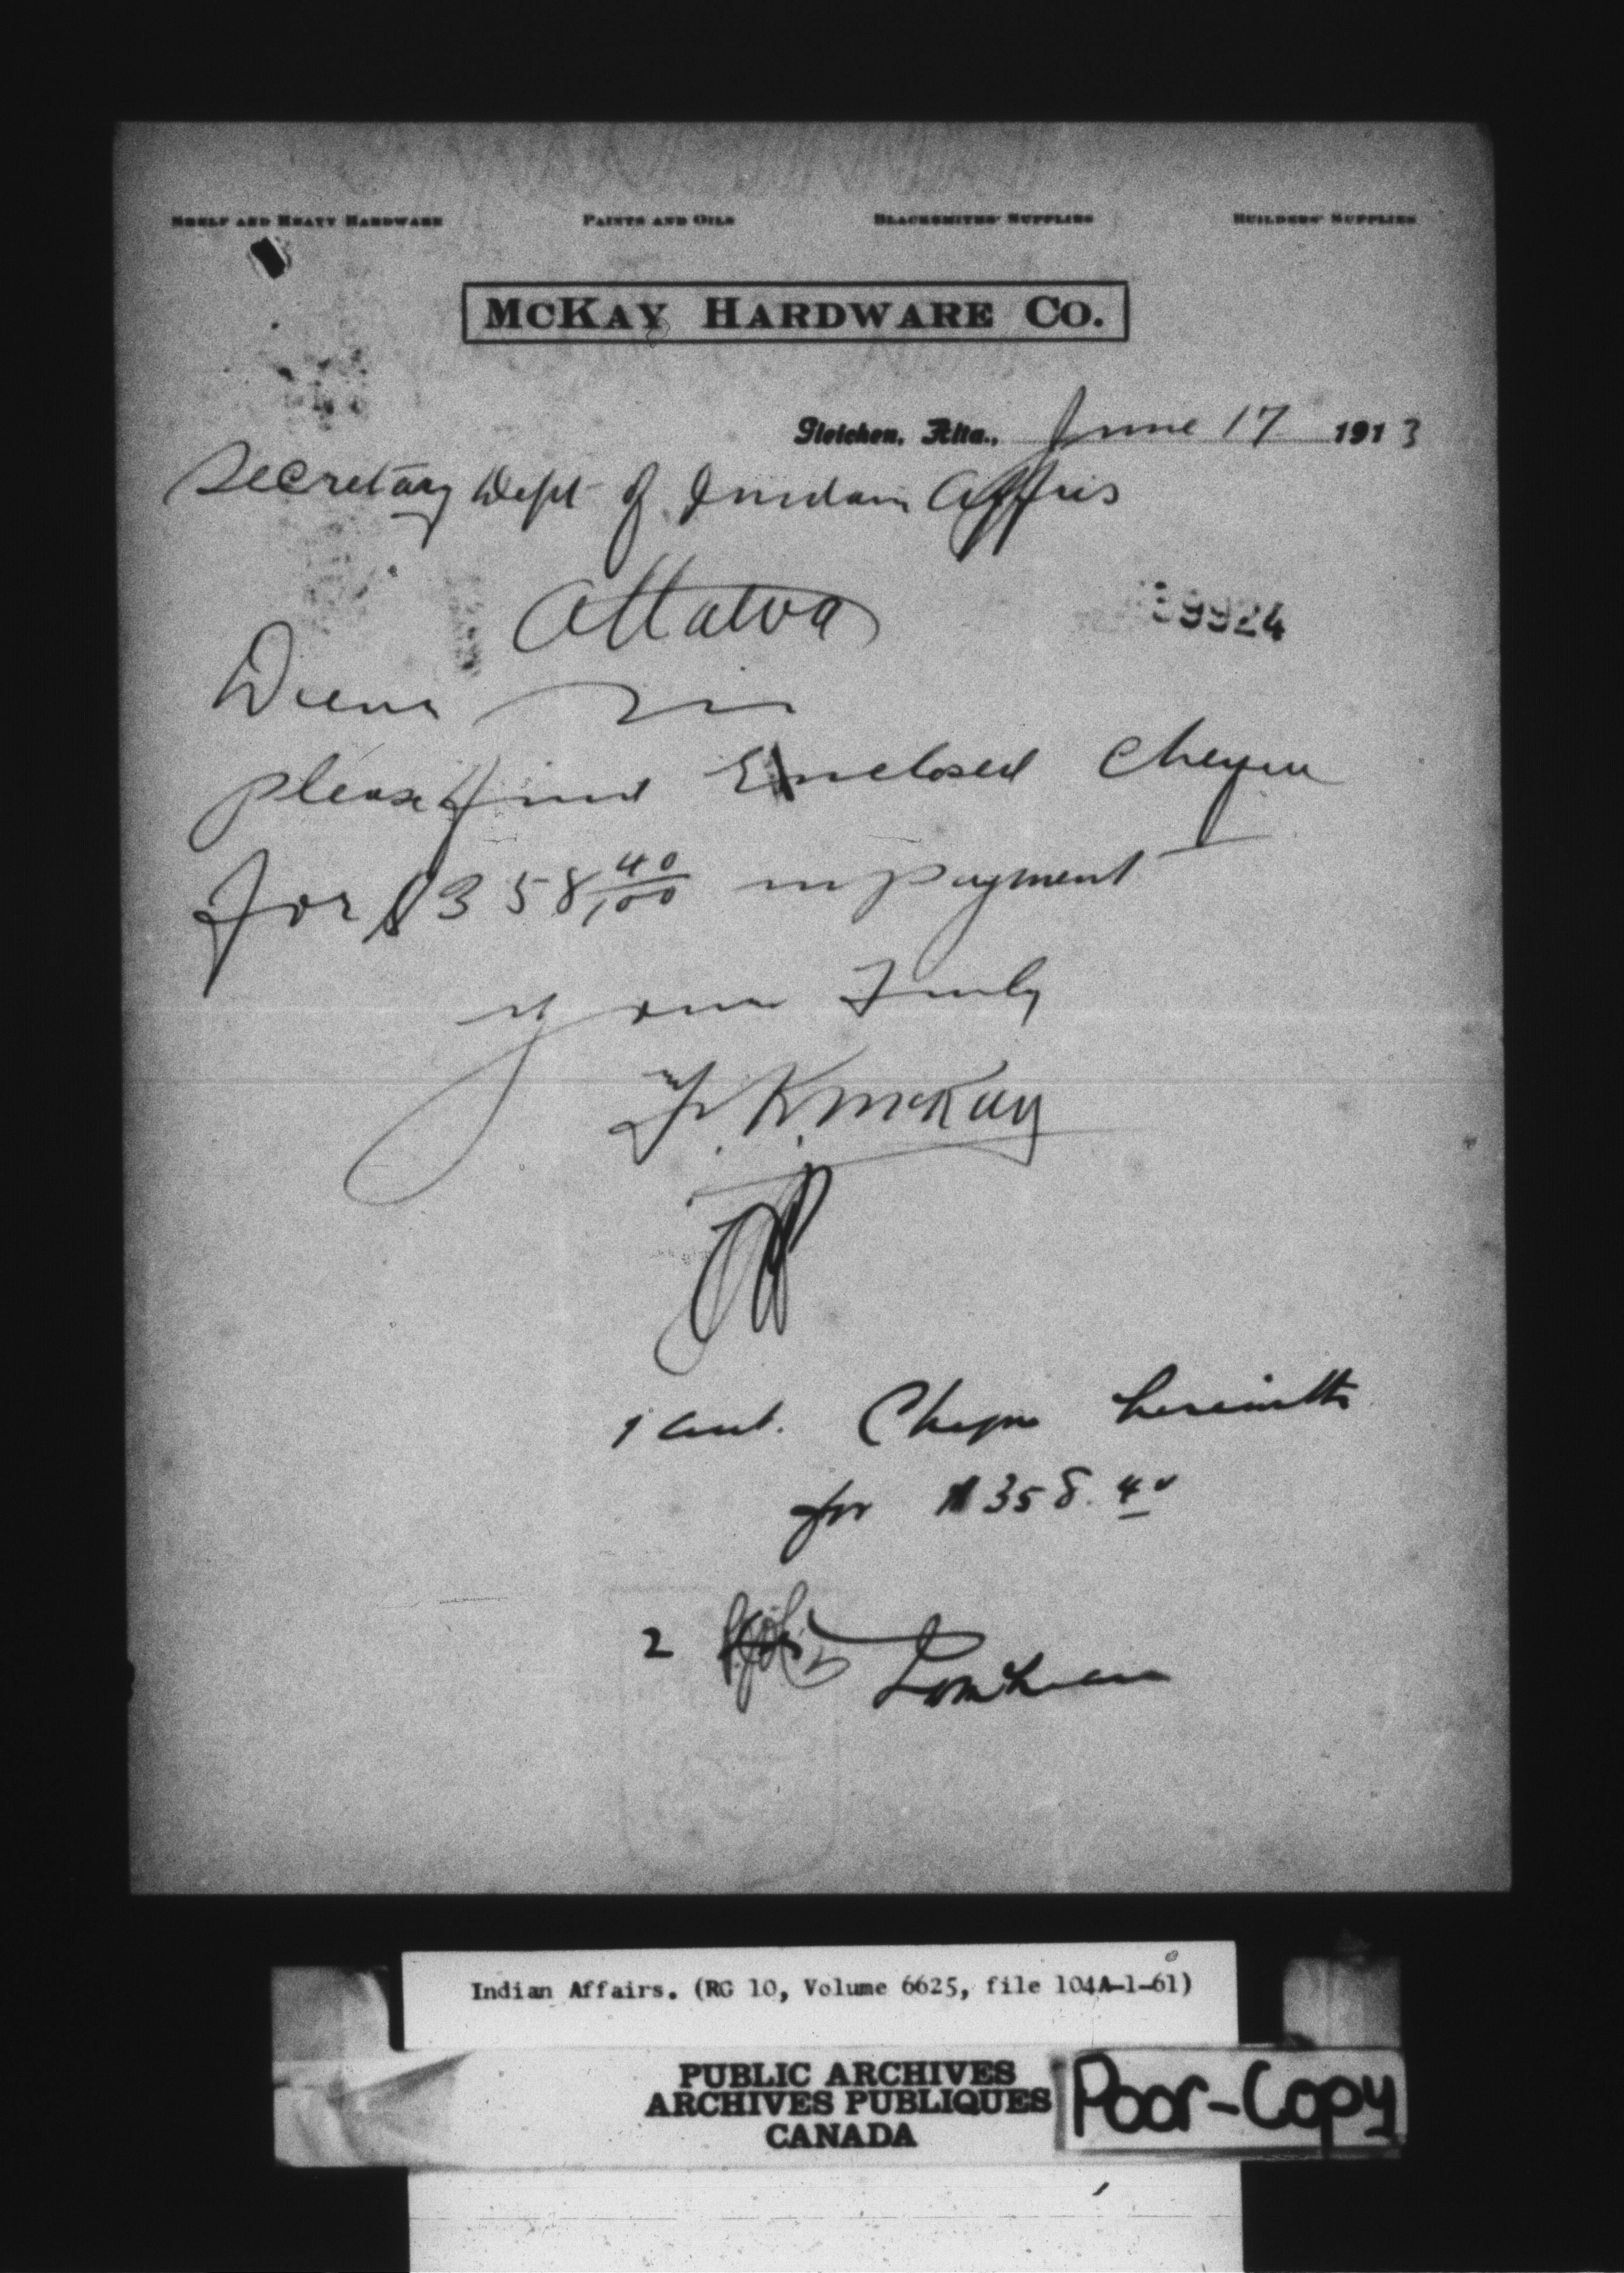 SHELF AND HEAVY HARDWARE PAINTS AND OILS BLACKSMITHS' SUPPLIES BUILDERS' SUPPLIES
McKAY HARDWARE Co.
Gleichen, Alta., June 17 1913
Secretary Dept of Inidain Affris
Ottawa
39924
Dear Sir
please find Enclosed Cheque
for $358, 40/100 in payment
yours Truly
K. McKay
1 Acct. Cheque herewith
for $358.40
2
Indian Affairs. (RG 10, Volume 6625, file 104A-1-61)
PUBLIC ARCHIVES
ARCHIVES PUBLIQUES
CANADA
Poor-Copy